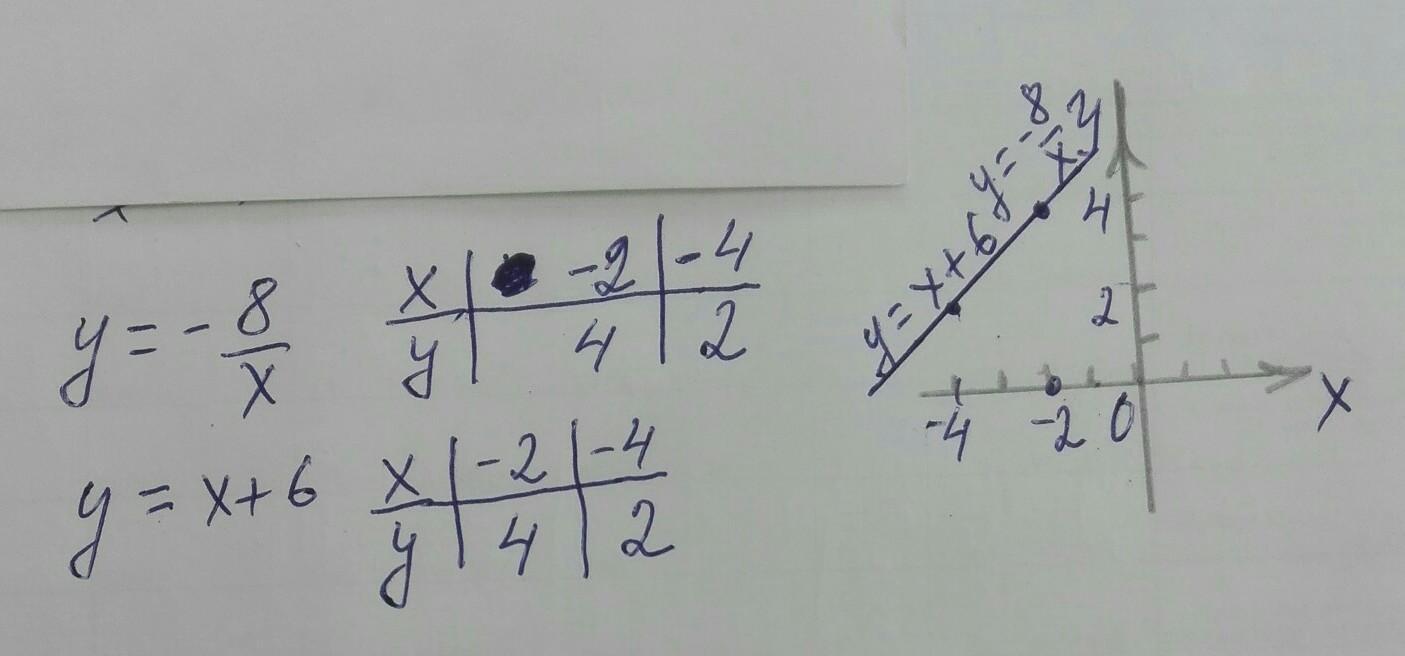 y = - 8/x
x | -2 | -4
y | 4 | 2
y = x + 6
x | -2 | -4
y | 4 | 2
y = x + 6 y = - 8/x
y
4
2
-4 -2 0 x